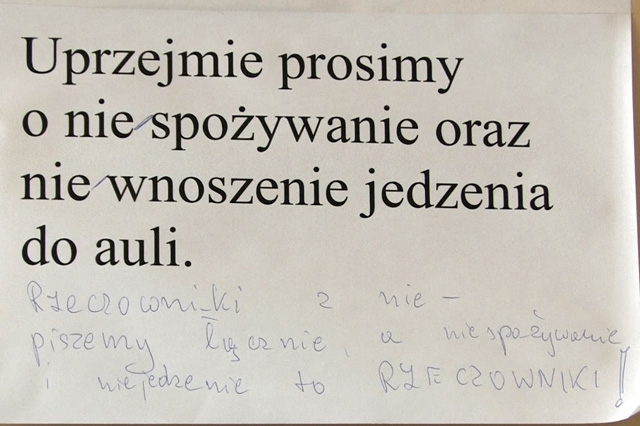 Uprzejmie prosimy
o nie spożywanie oraz
nie wnoszenie jedzenia
do auli.
Rzeczowniki z nie –
piszemy łącznie, a niespożywanie
i niejedzenie to RZECZOWNIKI!